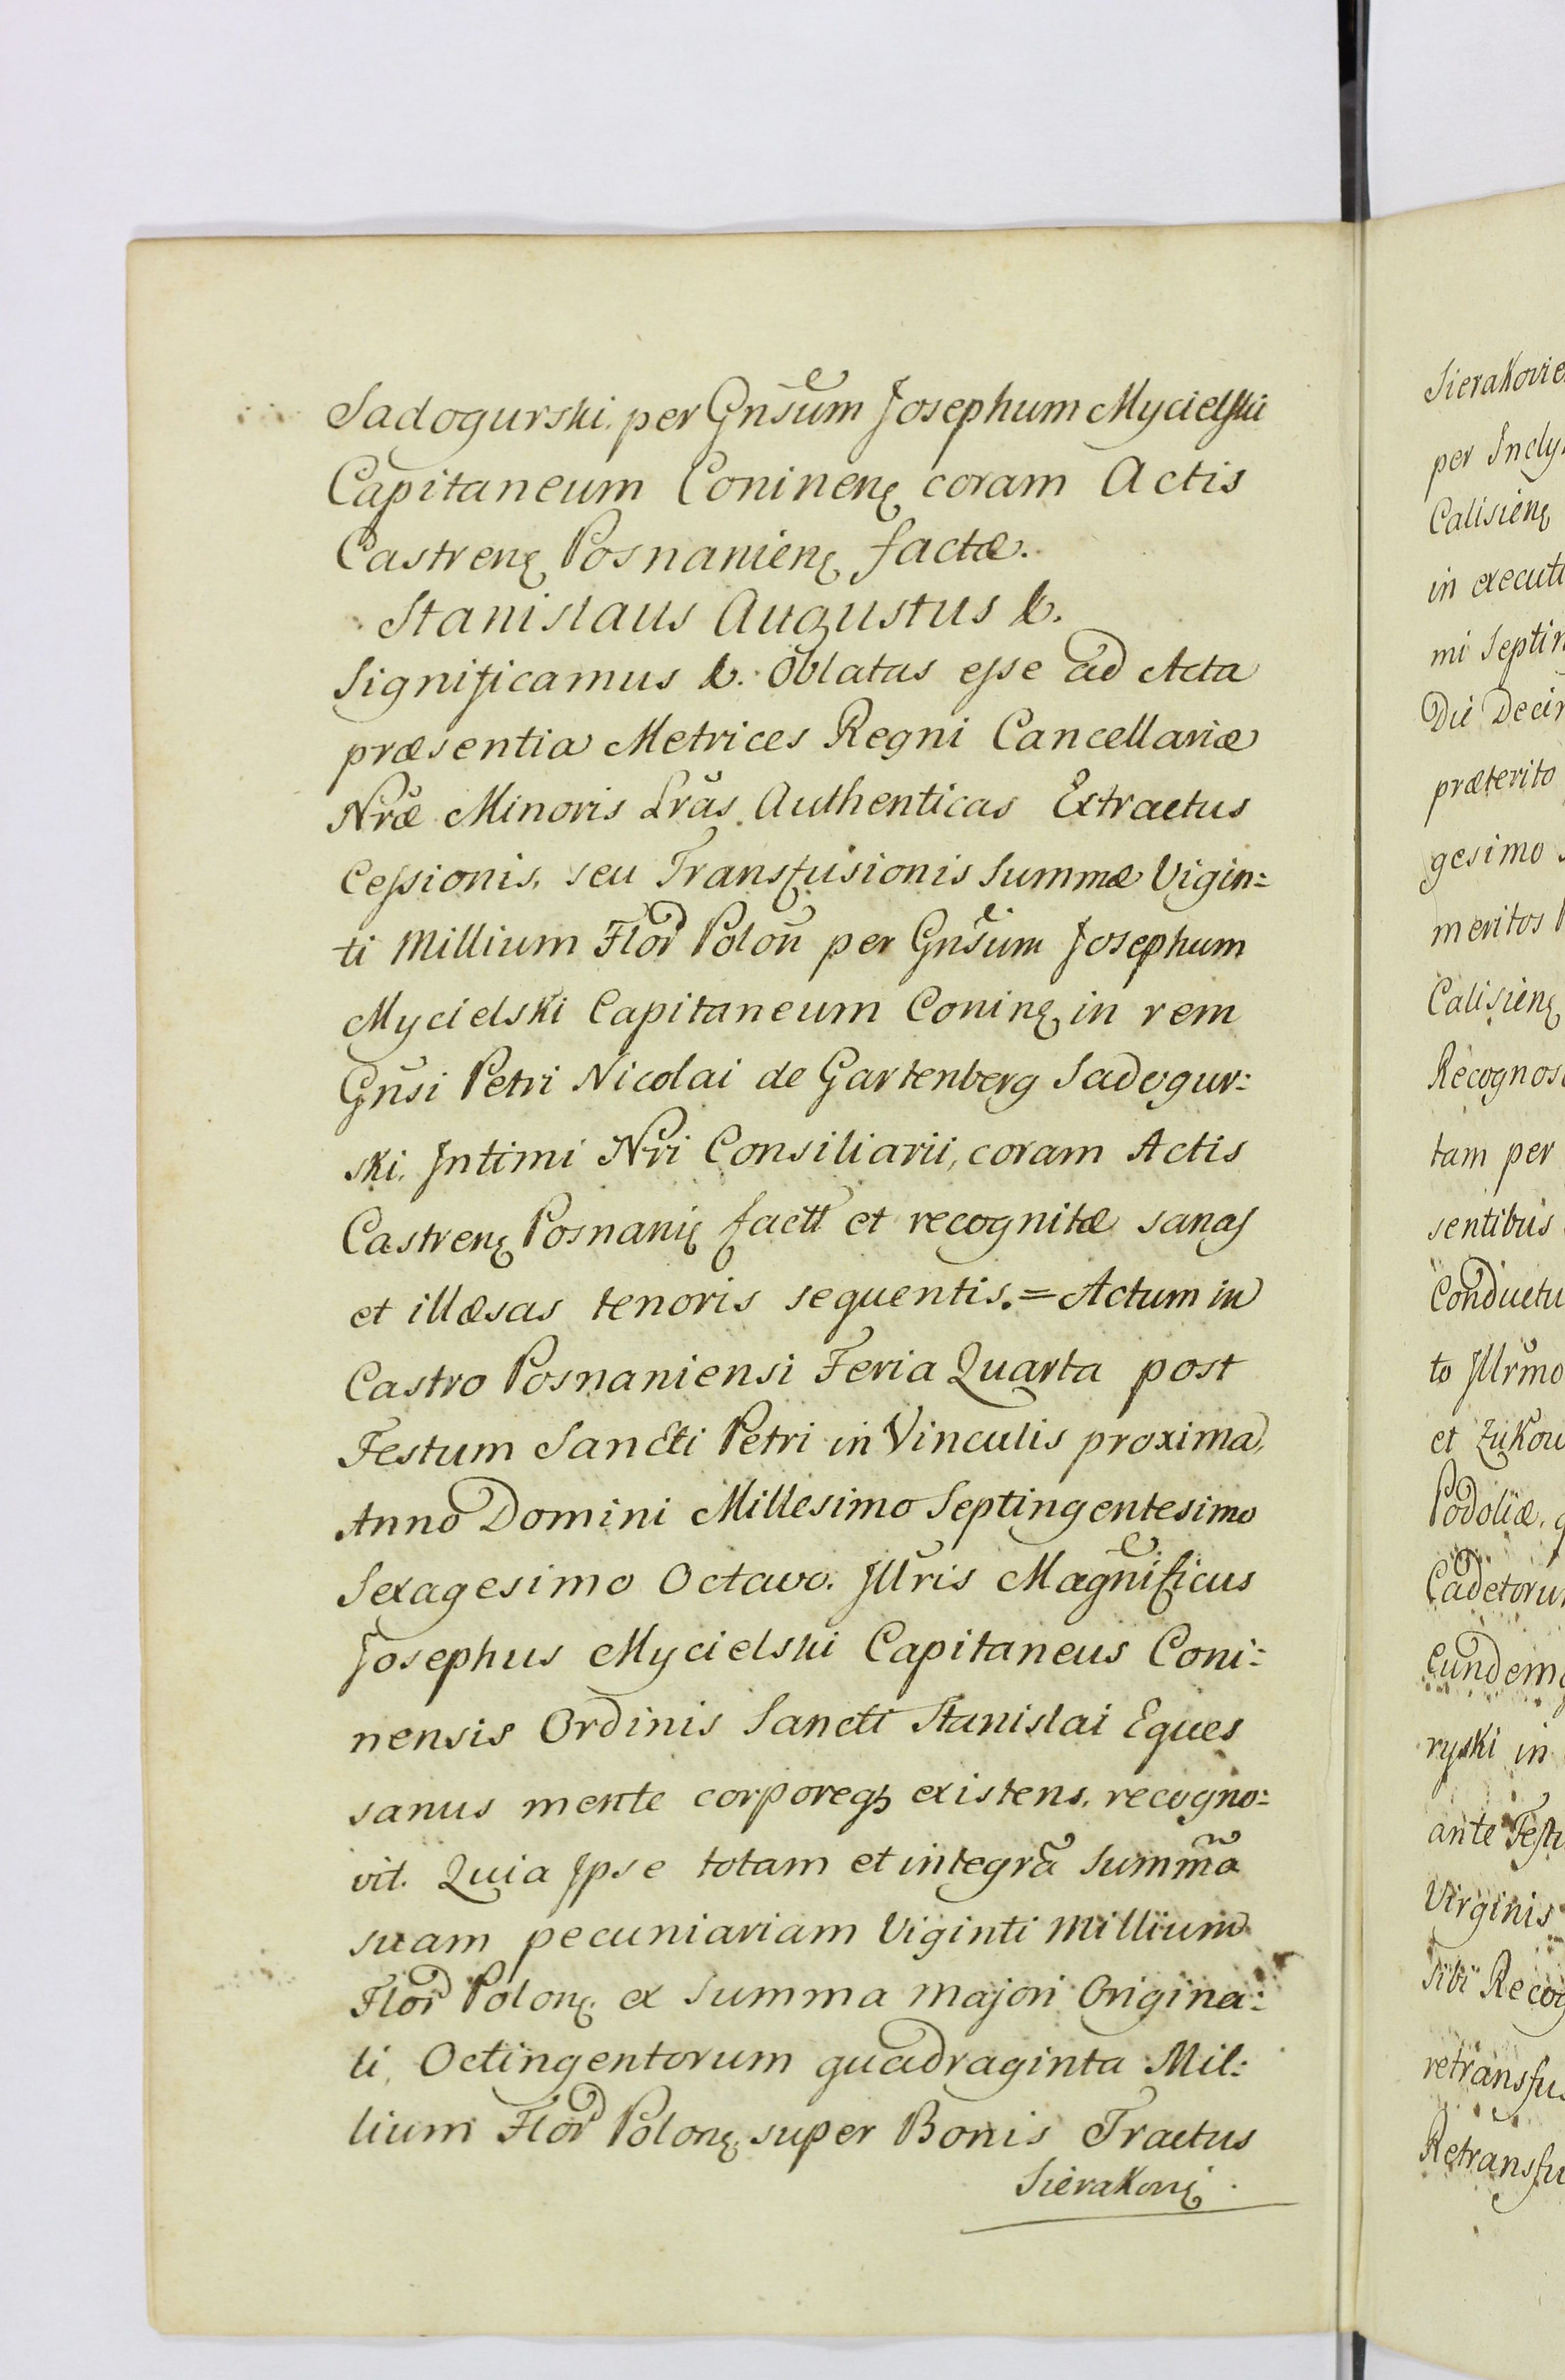 Sadogurski. per Gnsum Josephum Mycielski
Capitaneum Coninenę coram Actis
Castrenę Posnanienę factæ.
Stanislaus Augustus &.
Significamus &. Oblatas esse ad Acta
præsentia Metrices Regni Cancellariæ
Nræ Minoris Lras Authenticas Extractus
Cessionis, seu Transfusionis Summæ Vigin=
ti Millium Flor Polon per Gnsum Josephum
Mycielski Capitaneum Coninę in rem
Gnsi Petri Nicolai de Gartenberg Sadogur=
ski. Intimi Nri Consiliarii, coram Actis
Castrenę Posnanię factt et recognitæ sanas
et illæsas tenoris sequentis.=Actum in
Castro Posnaniensi Feria Quarta post
Festum Sancti Petri in Vinculis proxima,
Anno Domini Millesimo Septingentesimo
Sexagesimo Octavo. Jllris Magnificus
Josephus Mycielski Capitaneus Coni=
nensis Ordinis Sancti Stanislai Eques
sanus mente corporeq₃ existens, recogno=
vit. Quia Jpse totam et integrã Summã
suam pecuniariam Viginti Millium
Flor Polonę. ex Summa majori Origina=
li, Octingentorum quadraginta Mil=
lium Flor Polonę. super Bonis Tractus
Sierakovię.
Sierakovie
per Incly
Calisienę
in executi
mi Septin
Die Decim
præterito
gesimo
meritos
Calisienę
Recognos
tam per
sentibus
Conductu
to Jllrmo
et Zukow
Podoliæ.
Cadetoru
Eundemq
ryski in
ante Festu
Virginis
Sibi Recog
retransfu
Retransfu